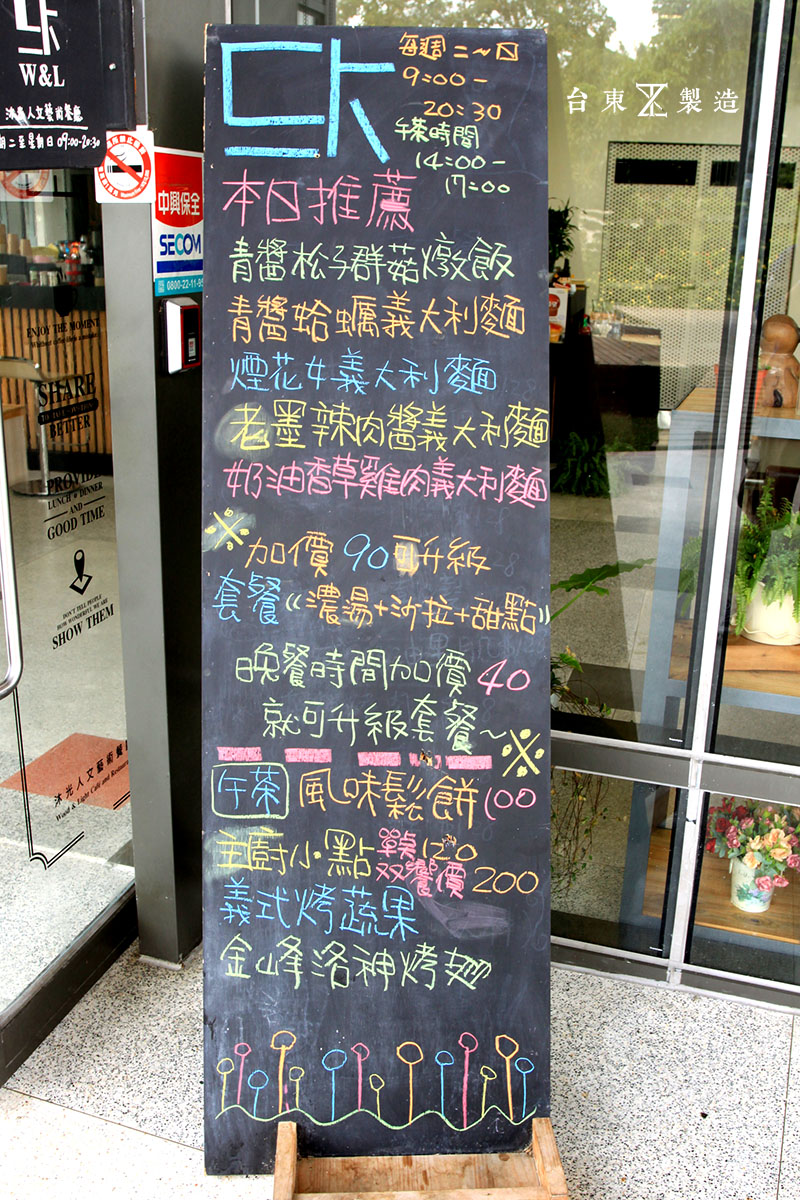 W&L
沐光人文藝術餐廳
期二至星期日 09:00-20:30
中興保全
SECOM
0800-22-11-95
ENJOY THE MOMENT
SHARE
BETTER
PROVIDE
LUNCH & DINNER
AND
GOOD TIME
DON'T TELL PEOPLE
HOW WONDERFUL WE ARE
SHOW THEM
沐光人文藝術餐廳
Wood & Light Café and Restaurant
每週二~日
9:00-
20:30
午茶時間
14:00-
17:00
本日推薦
青醬松子群菇燉飯
青醬蛤蠣義大利麵
煙花女義大利麵
老墨辣肉醬義大利麵
奶油香草雞肉義大利麵
※
加價90可升級
套餐《濃湯+沙拉+甜點》
晚餐時間加價40
就可升級套餐~※
午茶 風味鬆餅100
主廚小點 單桌120
双饗價200
義式烤蔬果
金峰洛神烤麵
台東製造